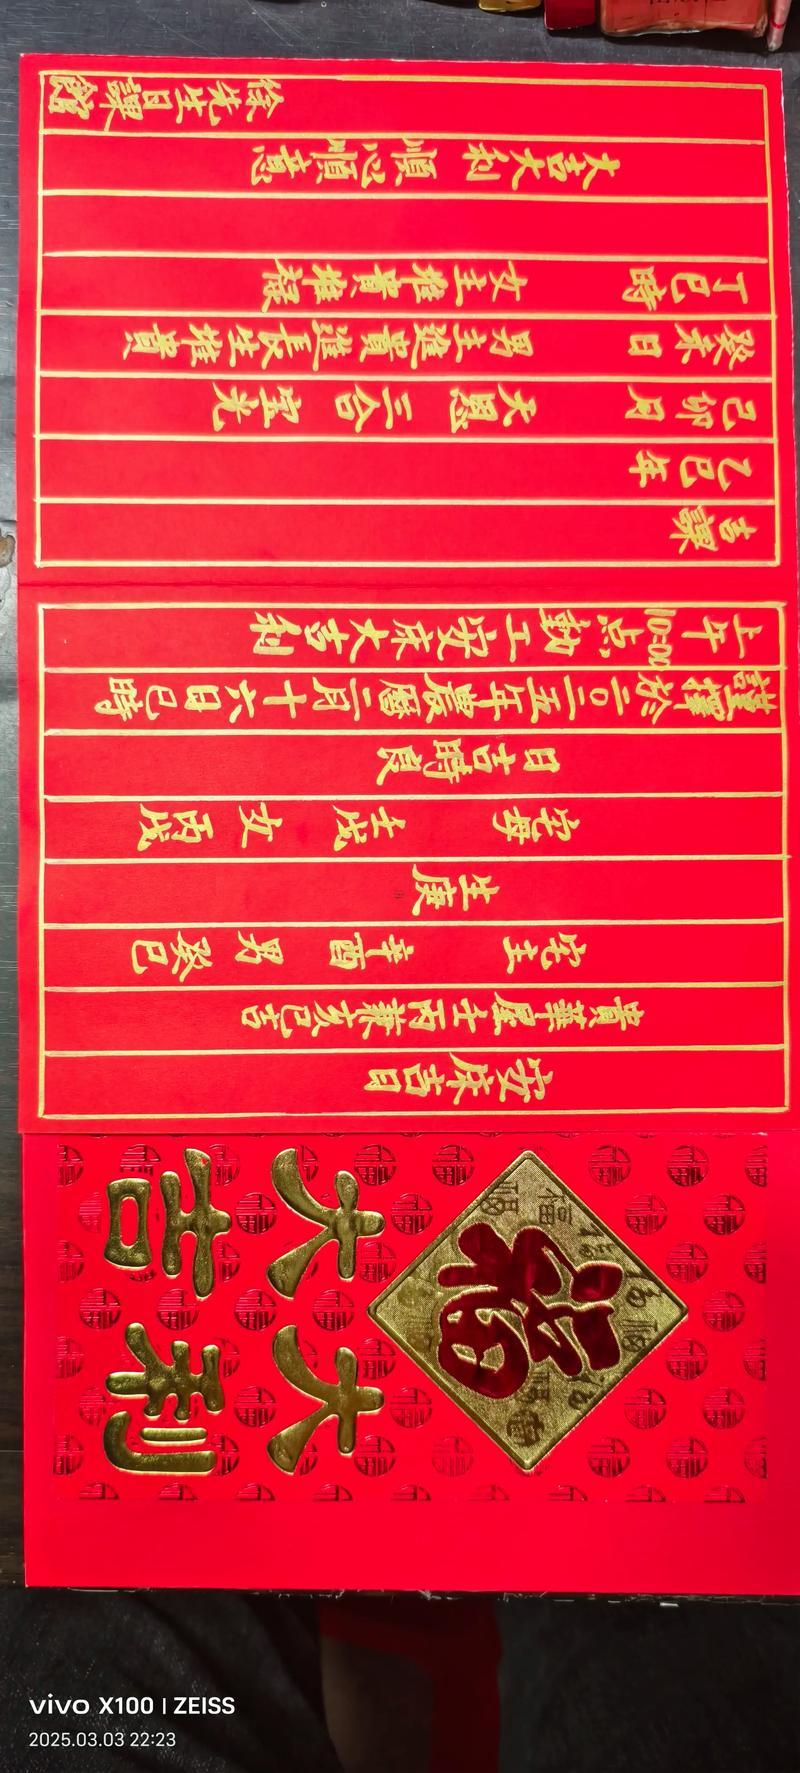 福
大吉
大利
安床吉日
貴華屋壬丙兼亥巳吉
宅主 辛酉 男 癸巳
生庚
宅母 壬戌 女 丙戌
日吉時良
謹擇於二〇二五年農曆二月十六日巳時
上午10:00点動工安床大吉利
吉課
乙巳年
己卯月 天恩 三合 宝光
癸未日 男主進貴進長生堆貴
丁巳時 女主堆貴堆祿
大吉大利 順心順意
徐先生日課館
vivo X100 | ZEISS
2025.03.03 22:23